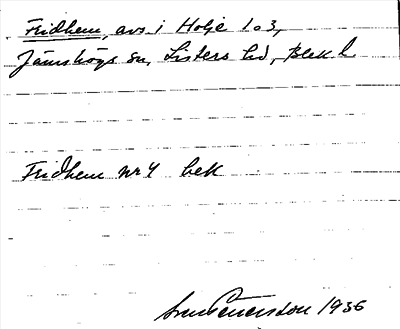 Fridhem, avs. i Holje 1o3,
Jämshögs sn, Listers hd, Blek. l
Fridhem nr 4 bek
Sven Petersson 1936